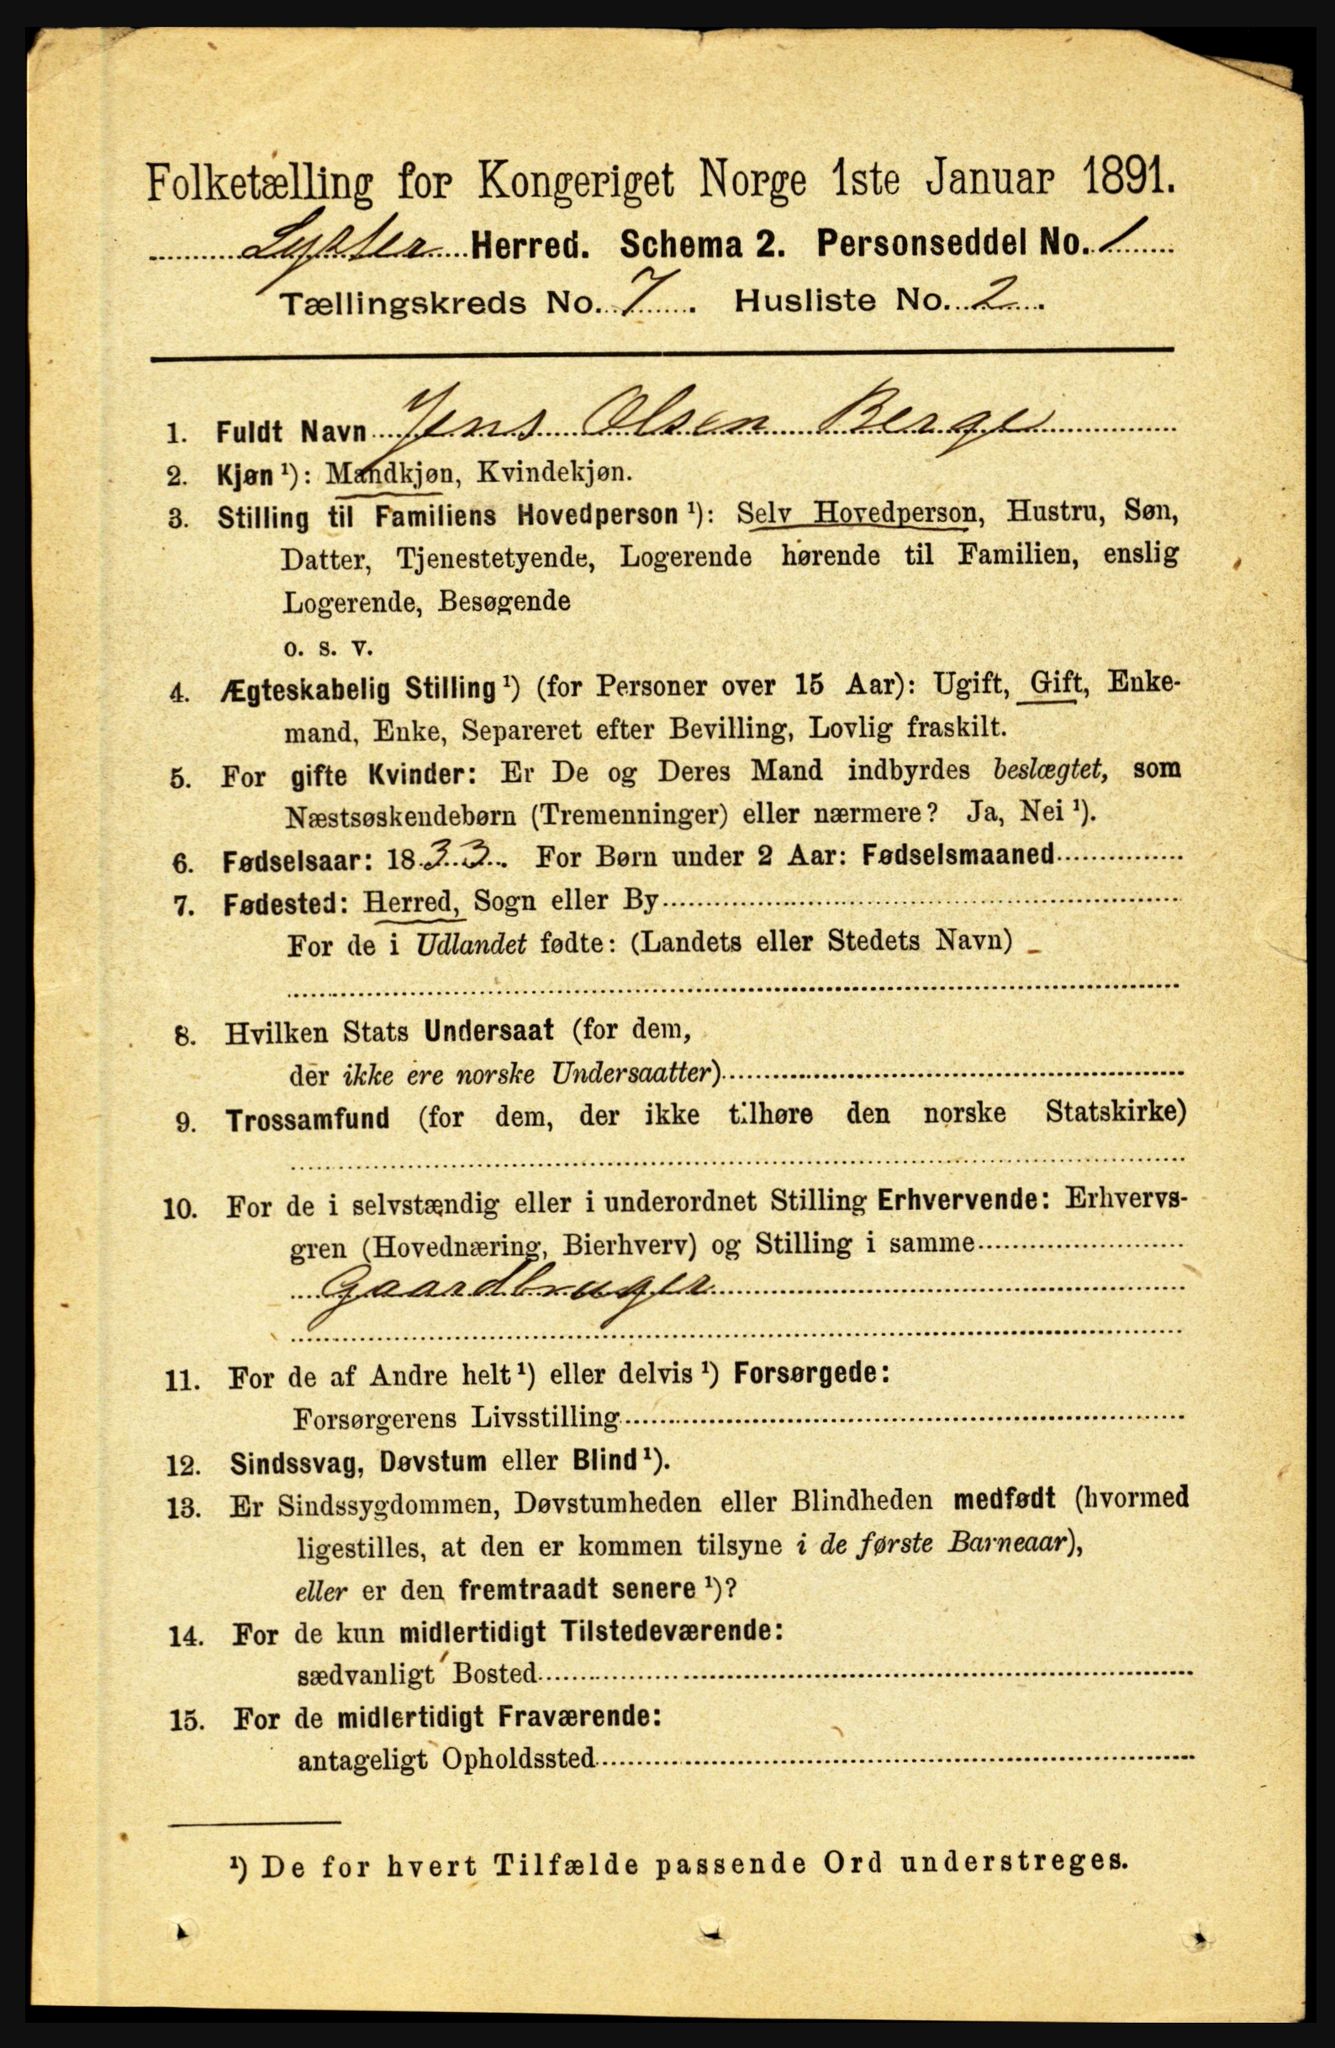 Folketælling for Kongeriget Norge 1ste Januar 1891.
Lyster Herred. Schema 2. Personseddel No. 1
Tællingskreds No. 7. Husliste No. 2.
1. Fuldt Navn Jens Olsen Berge
2. Kjøn ¹): Mandkjøn, Kvindekjøn.
3. Stilling til Familiens Hovedperson ¹): Selv Hovedperson, Hustru, Søn,
Datter, Tjenestetyende, Logerende hørende til Familien, enslig
Logerende, Besøgende
o. s. v.
4. Ægteskabelig Stilling ¹) (for Personer over 15 Aar): Ugift, Gift, Enke-
mand, Enke, Separeret efter Bevilling, Lovlig fraskilt.
5. For gifte Kvinder: Er De og Deres Mand indbyrdes beslægtet, som
Næstsøskendebørn (Tremenninger) eller nærmere? Ja, Nei ¹).
6. Fødselsaar: 1833. For Børn under 2 Aar: Fødselsmaaned
7. Fødested: Herred, Sogn eller By
For de i Udlandet fødte: (Landets eller Stedets Navn)
8. Hvilken Stats Undersaat (for dem,
der ikke ere norske Undersaatter)
9. Trossamfund (for dem, der ikke tilhøre den norske Statskirke)
10. For de i selvstændig eller i underordnet Stilling Erhvervende: Erhvervs-
gren (Hovednæring, Bierhverv) og Stilling i samme
Gaardbruger
11. For de af Andre helt ¹) eller delvis ¹) Forsørgede:
Forsørgerens Livsstilling
12. Sindssvag, Døvstum eller Blind ¹).
13. Er Sindssygdommen, Døvstumheden eller Blindheden medfødt (hvormed
ligestilles, at den er kommen tilsyne i de første Barneaar),
eller er den fremtraadt senere ¹)?
14. For de kun midlertidigt Tilstedeværende:
sædvanligt Bosted
15. For de midlertidigt Fraværende:
antageligt Opholdssted
¹) De for hvert Tilfælde passende Ord understreges.